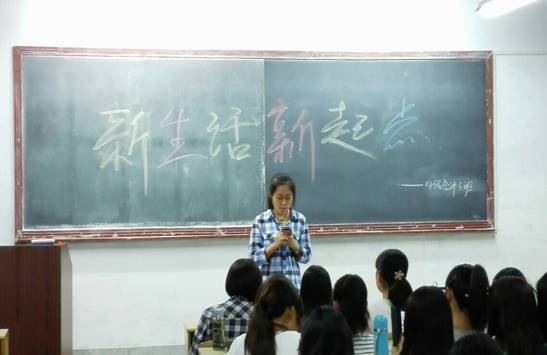 新生活新起点
——14级会计5班